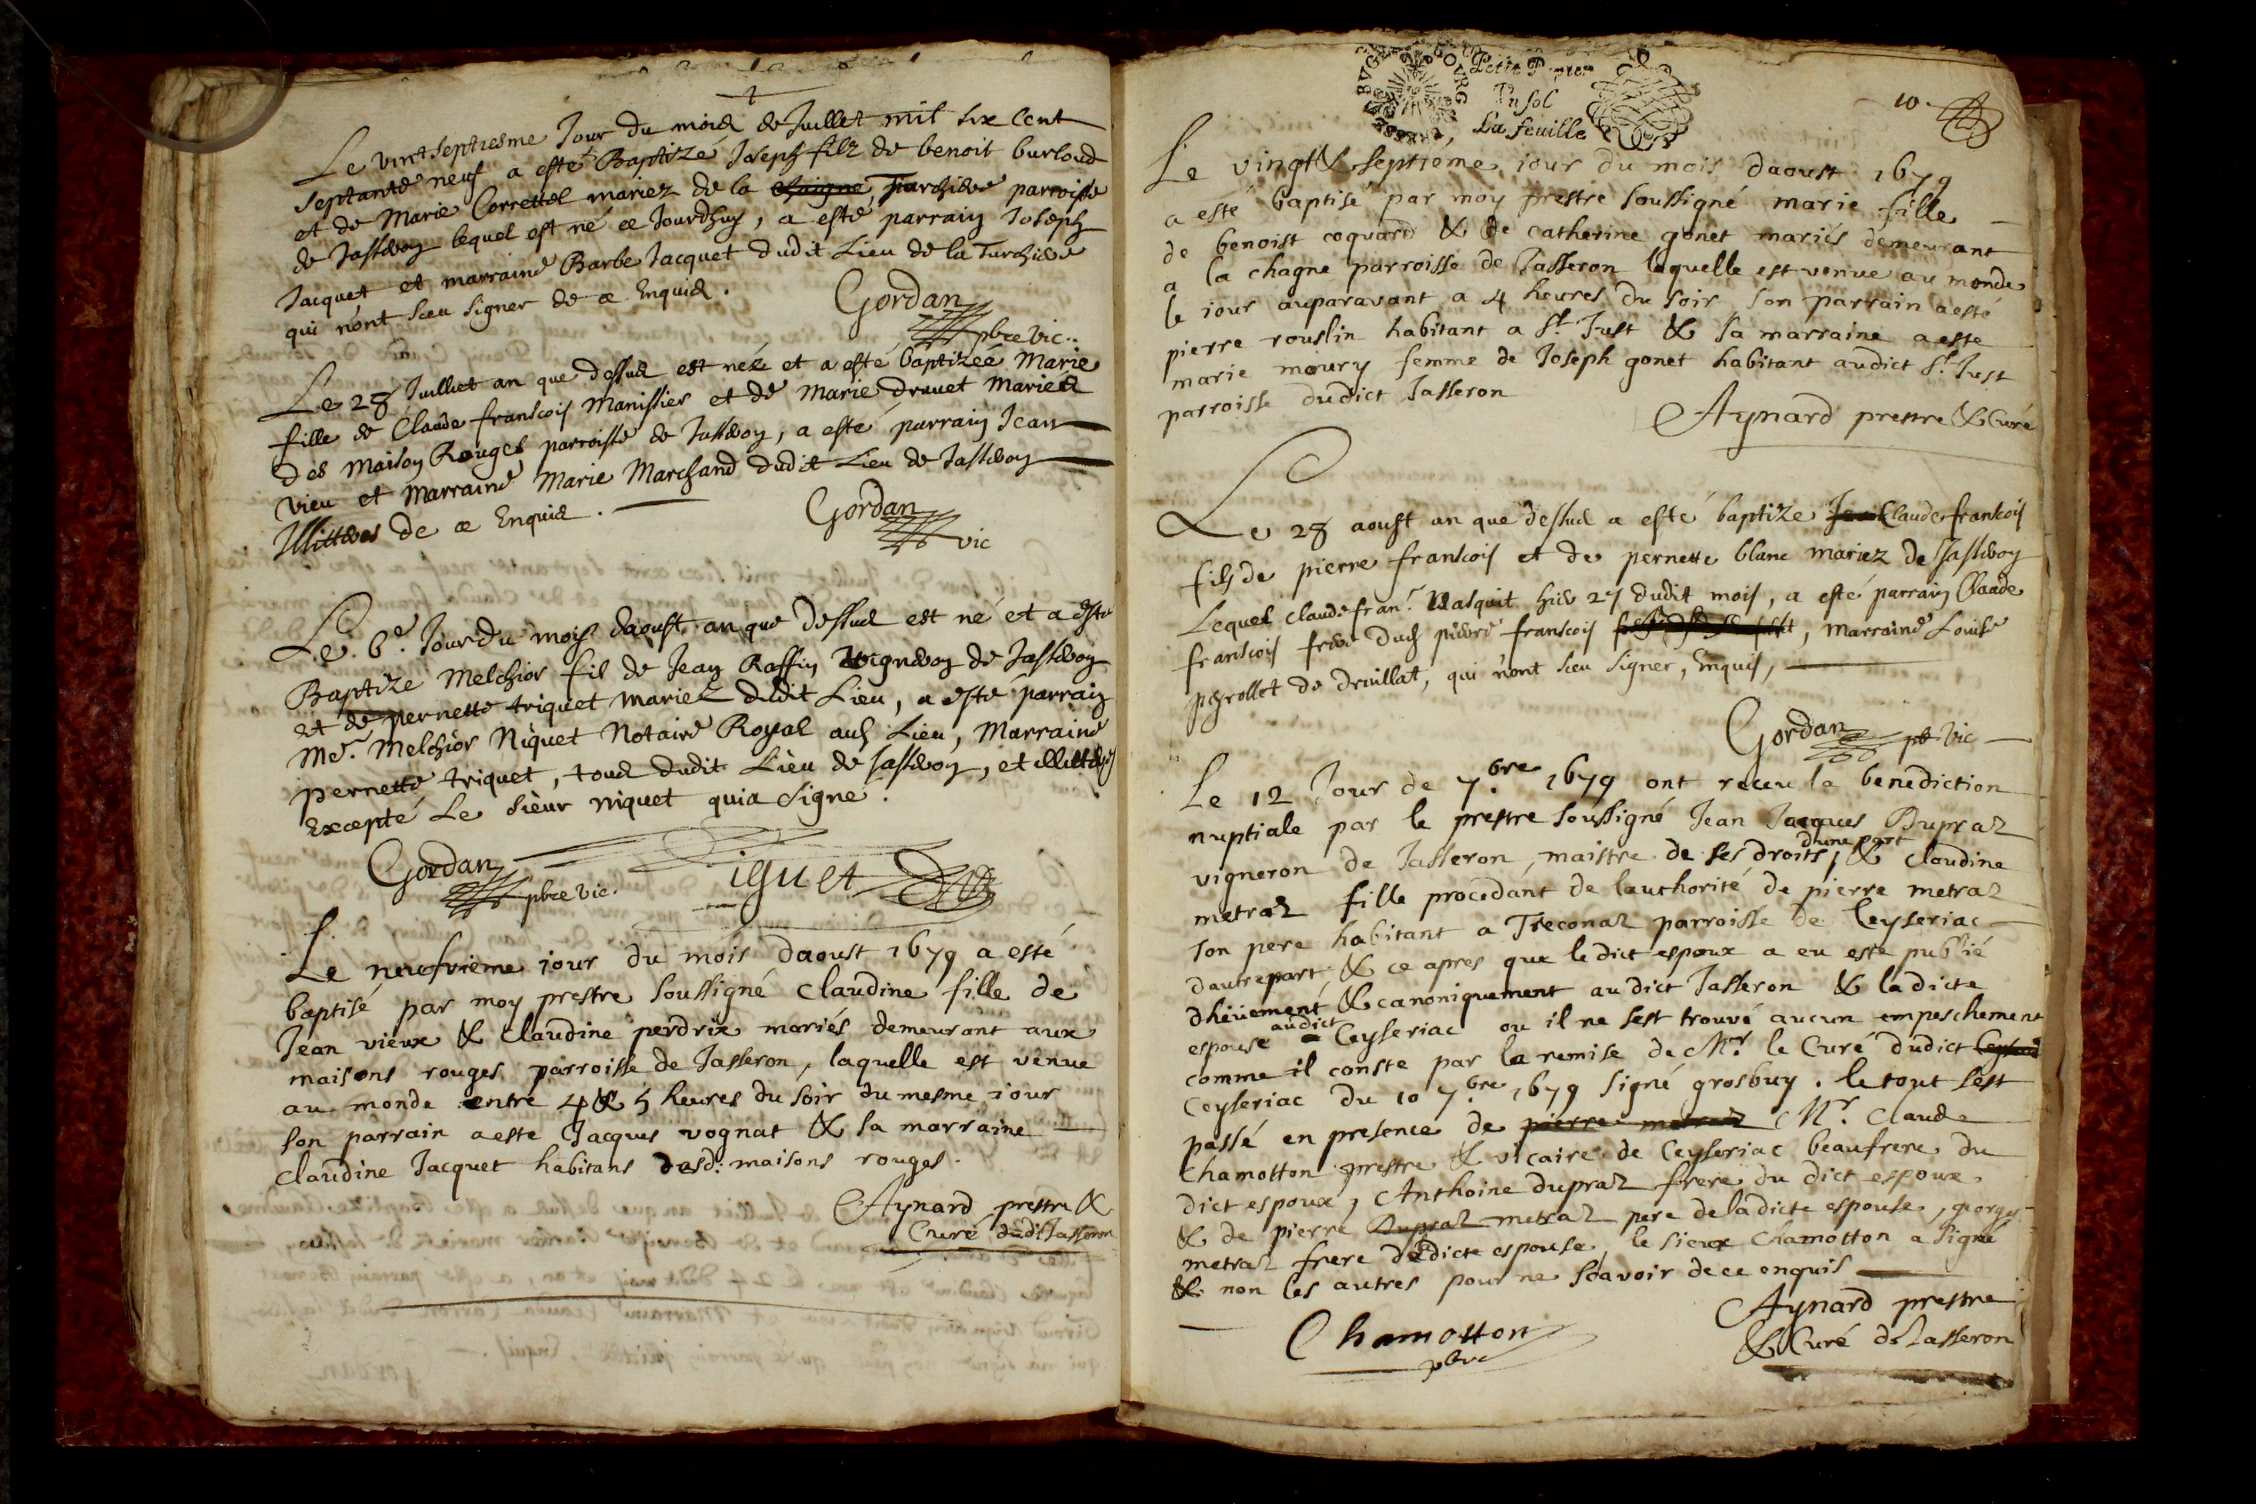 Le vint septiesme Jour du mois de Juillet mil six cent
septante neuf a esté Baptizé Joseph filz de benoit burloud
et de Marie Correttel mariez de la chaigne Turchiere parroisse
de Jasseron lequel est né ce Jourdhuy, a esté parrain Joseph
Jacquet et marraine Barbe Jacquet dudit Lieu de la Turchiere
qui n'ont sceu signer de ce Enquis.
Gordan
pbre vic.
Le 28 Juillet an que dessus est née et a esté baptizée Marie
fille de Claude francois Manissier et de Marie druet Mariés
des Maison Rouges parroisse de Jasseron, a esté parrain Jean
Vieu et Marraine Marie Marchand dudit Lieu de Jasseron
Illitteres de ce Enquis.
Gordan
vic
Le 6e. Jour du mois daoust an que dessus est né et a esté
Baptizé Melchior fil de Jean Raffin, Vigneron de Jasseron
et de pernette triquet mariez dudit Lieu, a esté parrain
Me. Melchior Niquet Notaire Royal aud Lieu, Marraine
pernette triquet, tous dudit Lieu de Jasseron, et illitteres
Excepté Le sieur niquet qui a signé.
Gordan
pbre vic.
Niquet
Le neufvieme iour du mois daoust 1679 a esté
baptisé par moy prestre soussigné claudine fille de
Jean vieux & claudine perdrix mariés demeurant aux
maisons rouges parroisse de Jasseron, laquelle est venue
au monde entre 4 & 5 heures du soir du mesme iour
son parrain a esté Jacques vognat & sa marraine
claudine Jacquet habitans desd: maisons rouges.
Aynard prestre &
Curé dudit Jasseron
BOURG
Petit Papier
Un sol
La feuille
10
Le vingt & septième iour du mois daoust 1679
a esté baptisé par moy prestre soussigné marie fille
de benoist coquard & de catherine gonet mariés demeurant
a la chagne parroisse de Jasseron laquelle est venue au monde
le iour auparavant a 4 heures du soir son parrain a esté
pierre rouslin habitant a St. Just & sa marraine a esté
marie moury femme de Joseph gonet habitant audict St. Just
parroisse dudict Jasseron
Aynard prestre & Curé
Le 28 aoust an que dessus a esté baptize Jean Claude francois
fils de pierre francois et de pernette blanc mariez de Jasseron
Lequel claude fran. Nasquit hier 27 dudit mois, a esté parrain Claude
francois frere dud pierre francois, Marraine Louise
peyrollet de druillat, qui n'ont sceu signer, Enquis,
Gordan
pb vic
Le 12 Jour de 7bre. 1679 ont receu la benediction
nuptiale par le prestre soussigné Jean Jacques Dupraz
vigneron de Jasseron, maistre de ses droits, dune part & claudine
metraz fille procedant de lauthorité de pierre metraz
son pere habitant a Treconaz parroisse de Ceyseriac
dautrepart & ce apres que le dict espoux a eu esté publié
dhëuement & canoniquement au dict Jasseron & la dicte
espouse audict a Ceyseriac ou il ne sest trouvé aucun empeschement
comme il conste par la remise de Mr. le Curé dudict Ceyseria
Ceyseriac du 10 7bre. 1679 signé grosbuy. le tout sest
passé en presence de pierre metraz Mr. Claude
Chamotton prestre & vicaire de Ceyseriac beaufrere du
dict espoux, Anthoine dupraz frere du dict espoux
& de pierre Dupraz metraz pere de la dicte espouse, george
metraz frere de dicte espouse, le sieur Chamotton a signé
& non les autres pour ne scavoir de ce enquis
Aynard prestre
& Curé de Jasseron
Chamotton
pbre